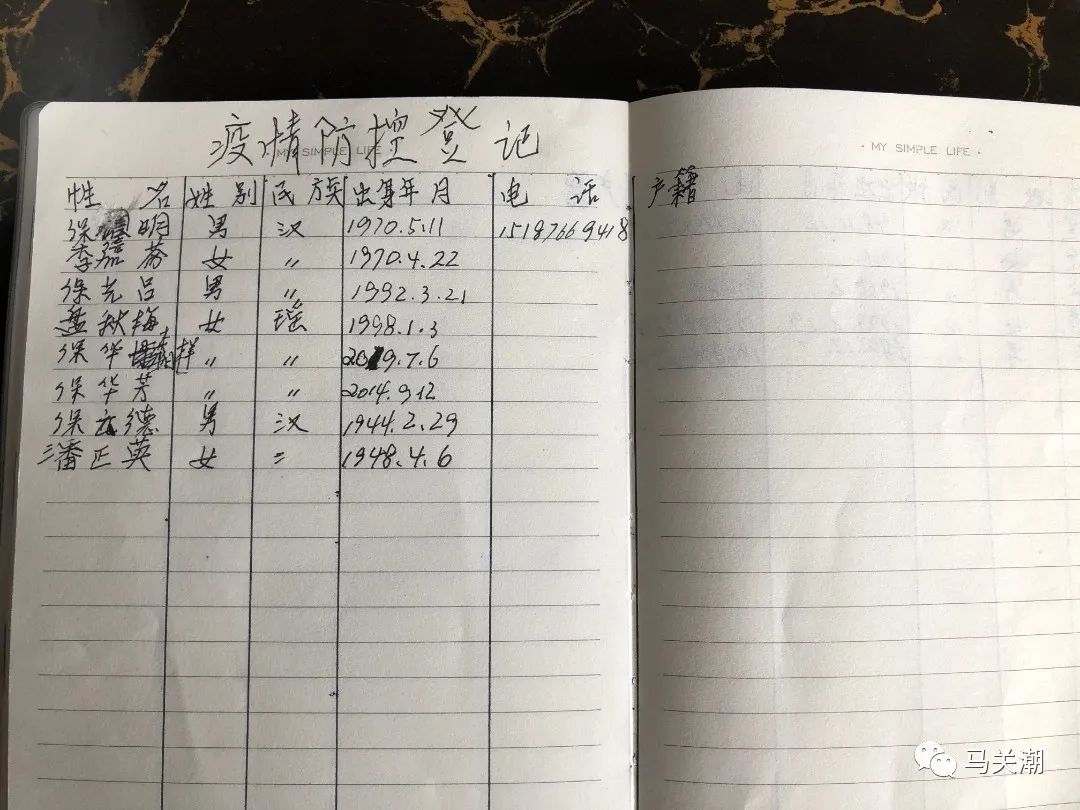 疫情防控登记
MY SIMPLE LIFE
· MY SIMPLE LIFE ·
性 名 姓别 民族 出身年月 电 话 户籍
保 明 男 汉 1970.5.11 15187669418
李 芬 女 〃 1970.4.22
保先吕 男 〃 1992.3.21
盘秋梅 女 瑶 1998.1.3
保华 样 〃 〃 2019.7.6
保华芳 〃 〃 2014.9.12
保 德 男 汉 1944.2.29
潘正英 女 = 1948.4.6
马关潮